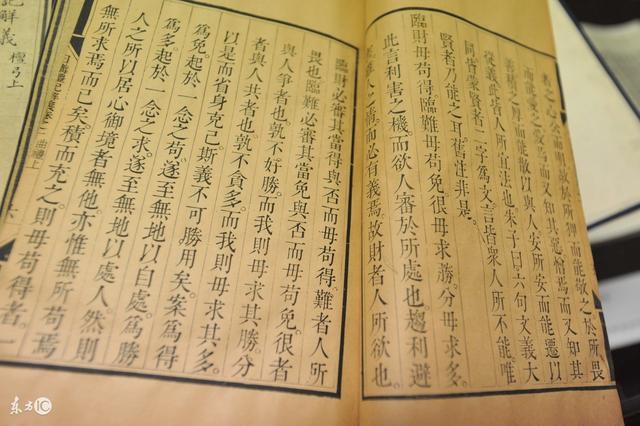 於所狎而能敬之於所畏
而又知其惡憎焉而又知其
善積而能散以與人安所安而能遷以
從義此皆人所宜法也朱子曰六句文義大
同皆蒙賢者二字為文言皆眾人所不能唯
賢者乃能之耳舊注非是。
臨財毋苟得。臨難毋苟免。很毋求勝。分毋求多。
此言利害之機而欲人審於所處也。趨利避
而必有義焉。故財者人所欲也
臨財必審其當得與否而毋苟得。難者人所
畏也臨難必審其當免與否而毋苟免。很者
與人爭者也孰不好勝而我則毋求其勝。分
者與人共者也孰不貪多而我則毋求其多。
以是而省身克己斯義不可勝用矣。案為得
為免起於一念之苟。遂至無地以自處。為勝
為多。起於一念之求。遂至無地以處人。然則
人之所以居心御境者無他亦惟無所苟焉
無所求焉而已矣。積而充之則毋苟得者。一
日講禮記解義 曲禮上
記解義 檀弓上
東方IC